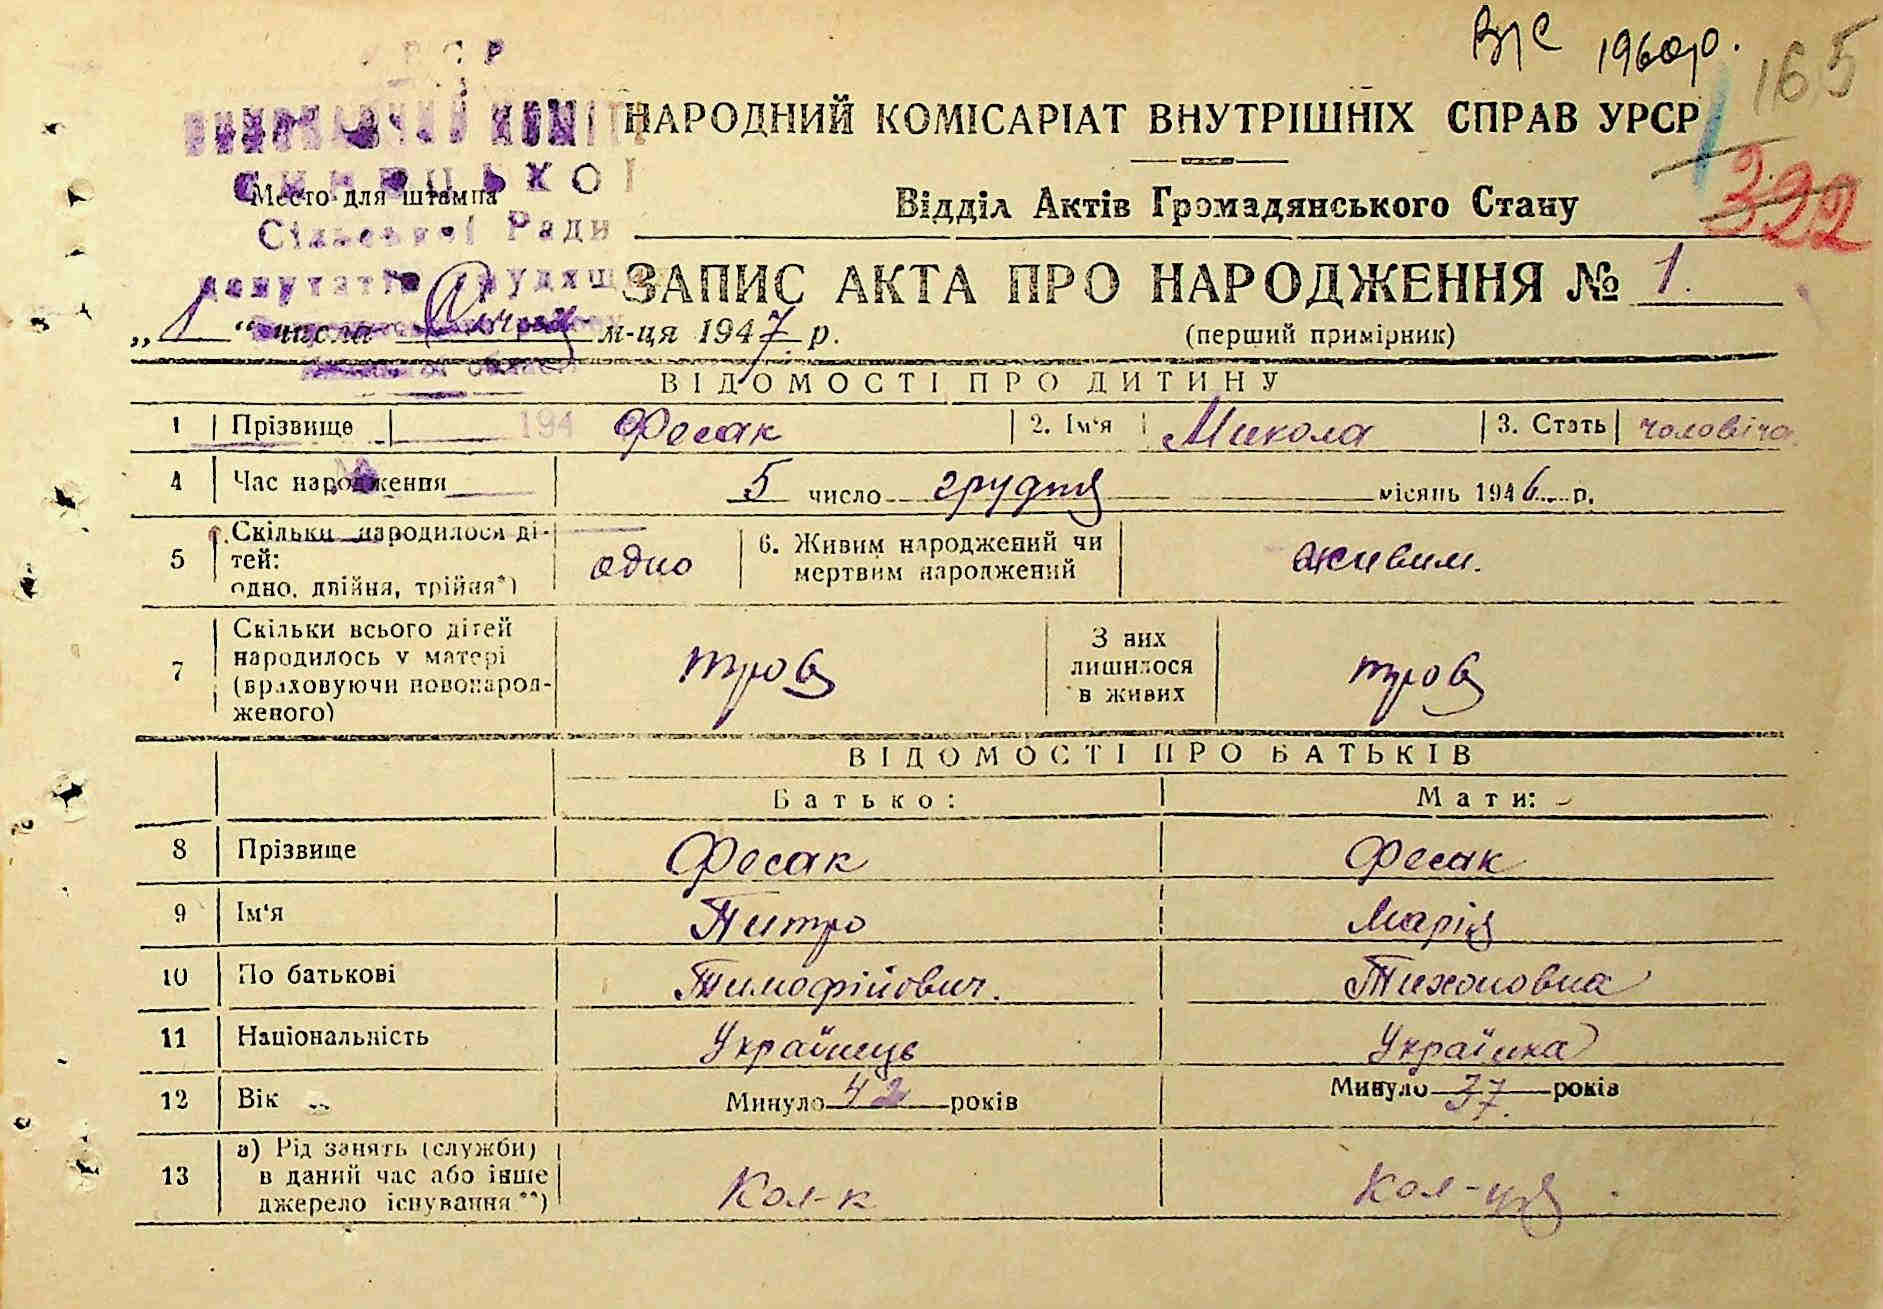 В/С 1960 р.
165
УРСР
НАРОДНИЙ КОМІСАРІАТ ВНУТРІШНІХ СПРАВ УРСР
322
ВИКОНАВЧИЙ КОМІТ
Место для штампа
Відділ Актів Громадянського Стану
Сільської Ради
депутатів трудящ
ЗАПИС АКТА ПРО НАРОДЖЕННЯ № 1.
„ 1 “ числа Січня м-ця 1947 р.
(перший примірник)
ВІДОМОСТІ ПРО ДИТИНУ
1 Прізвище 194 Фесак 2. Ім'я Микола 3. Стать чоловіча
4 Час народження 5 число грудня місяць 1946 р.
5 Скільки народилося ді-
тей: одно 6. Живим народжений чи живим.
одно, двійня, трійня*) мертвим народжений
7 Скільки всього дітей
народилось у матері троє З них лишилося в живих троє
(враховуючи новонарод-
женого)
ВІДОМОСТІ ПРО БАТЬКІВ
Батько: Мати:
8 Прізвище Фесак Фесак
9 Ім'я Питро Марія
10 По батькові Тимофійович. Тихоновна
11 Національність Українець Українка
12 Вік Минуло 42 років Минуло 37. років
13 а) Рід занять (служби)
в даний час або інше Кол-к Кол-ця
джерело існування**)